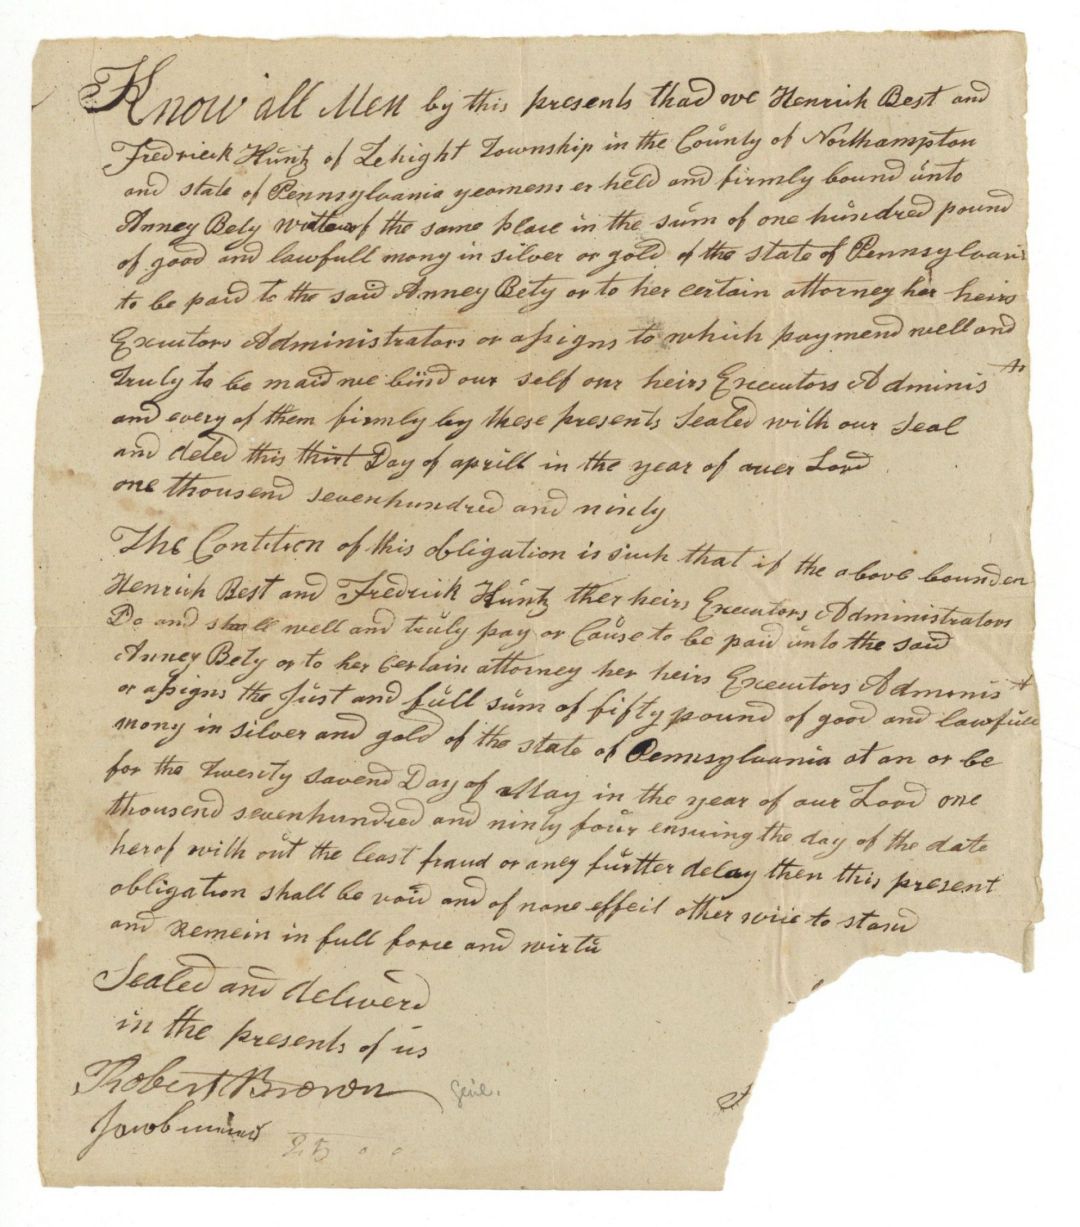 Know all Men by this presents thad we Henrich Best and
Fredrick Huntz of Lehight Township in the County of Northampton
and state of Pennsylvania yeomens er held and firmly bound unto
Anney Bety of the same place in the sum of one hundred pound
of good and lawfull mony in silver or gold of the state of Pennsylvani
to be paid to the said Anney Bety or to her certain attorney her heirs
Executors Administrators or assigns to which paymend well and
truly to be maid we bind our self our heirs Executors Adminis trs
and every of them firmly by these presents Sealed with our Seal
and deted this thirt Day of aprill in the year of ouer Lord
one thousend sevenhundred and ninty
The Contition of this obligation is such that if the above bounden
Henrich Best and Fredrick Huntz ther heirs Executors Administrators
Do and shall well and truly pay or Cause to be paid unto the said
Anney Bety or to her certain attorney her heirs Executors Adminis
or assigns the Just and full sum of fifty pound of good and lawfull
mony in silver and gold of the state of Pennsylvania at an or be
for the twenty savend Day of May in the year of our Lord one
thousend sevenhundred and ninty four ensuing the day of the date
herof with out the least fraud or aney furtter delay then this present
obligation shall be void and of none effect other wiie to stand
and Remein in full force and wirtu
Sealed and deliverd
in the presents of us
Robert Brown
Jacob